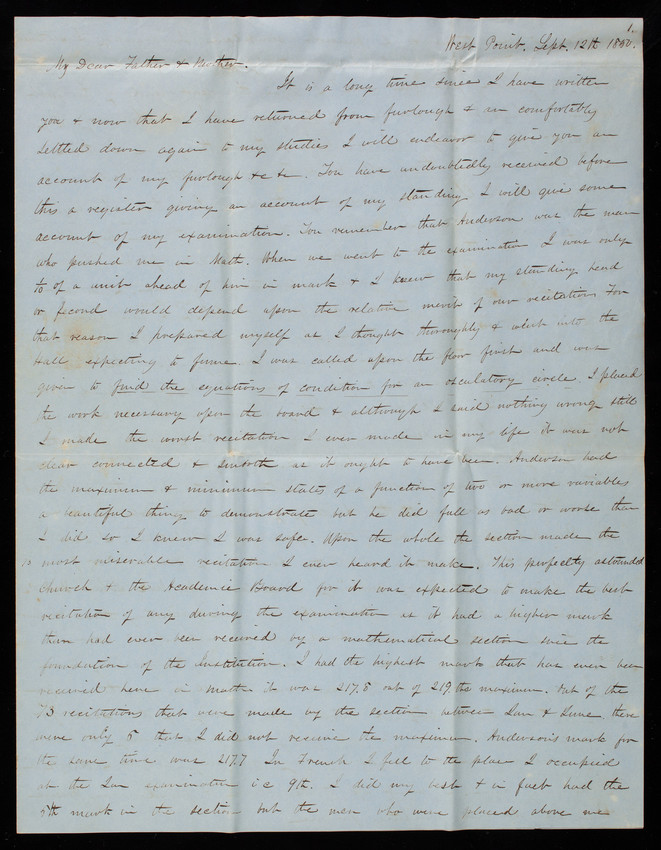 1.
West Point. Sept. 12th 1850.
My Dear Father & Mother.
It is a long time since I have written
you & now that I have returned from furlough & am comfortably
settled down again to my studies I will endeavor to give you an
account of my furlough &c &c. You have undoubtedly received before
this a register giving an account of my standing. I will give some
account of my examination. You remember that Anderson was the man
who pushed me in Math. When we went to the examination I was only
1/10 of a unit ahead of him in mark & I knew that my standing head
or second would depend upon the relative merit of our recitations. For
that reason I prepared myself as I thought thoroughly & went into the
Hall expecting to fume. I was called upon the floor first and was
given to find the equations of condition for an osculatory circle. I placed
the work necessary upon the board & although I said nothing wrong still
I made the worst recitation I ever made in my life it was not
clear connected & smooth as it ought to have been. Anderson had
the maximum & minimum states of a function of two or more variables
a beautiful thing to demonstrate but he did full as bad or worse than
I did so I knew I was safe. Upon the whole the section made the
most miserable recitation I ever heard it make. This perfectly astounded
Church & the Academic Board for it was expected to make the best
recitation of any during the examination as it had a higher mark
than had ever been received by a mathematical section since the
foundation of the Institution. I had the highest mark that has ever been
received here in math. it was 217.8 out of 219 the maximum. Out of the
73 recitations that were made by the section between Jan & June, there
were only 5 that I did not receive the maximum. Anderson's mark for
the same time was 217.7 In French I fell to the place I occupied
at the Jan examination i e 9th. I did my best & in fact had the
5th mark in the section but the men who were placed above me